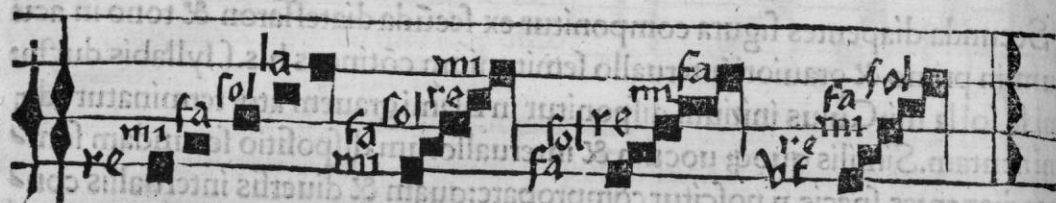 re mi fa ſol la mi fa ſol re mi fa ſol re mi fa Vt re mi fa ſol